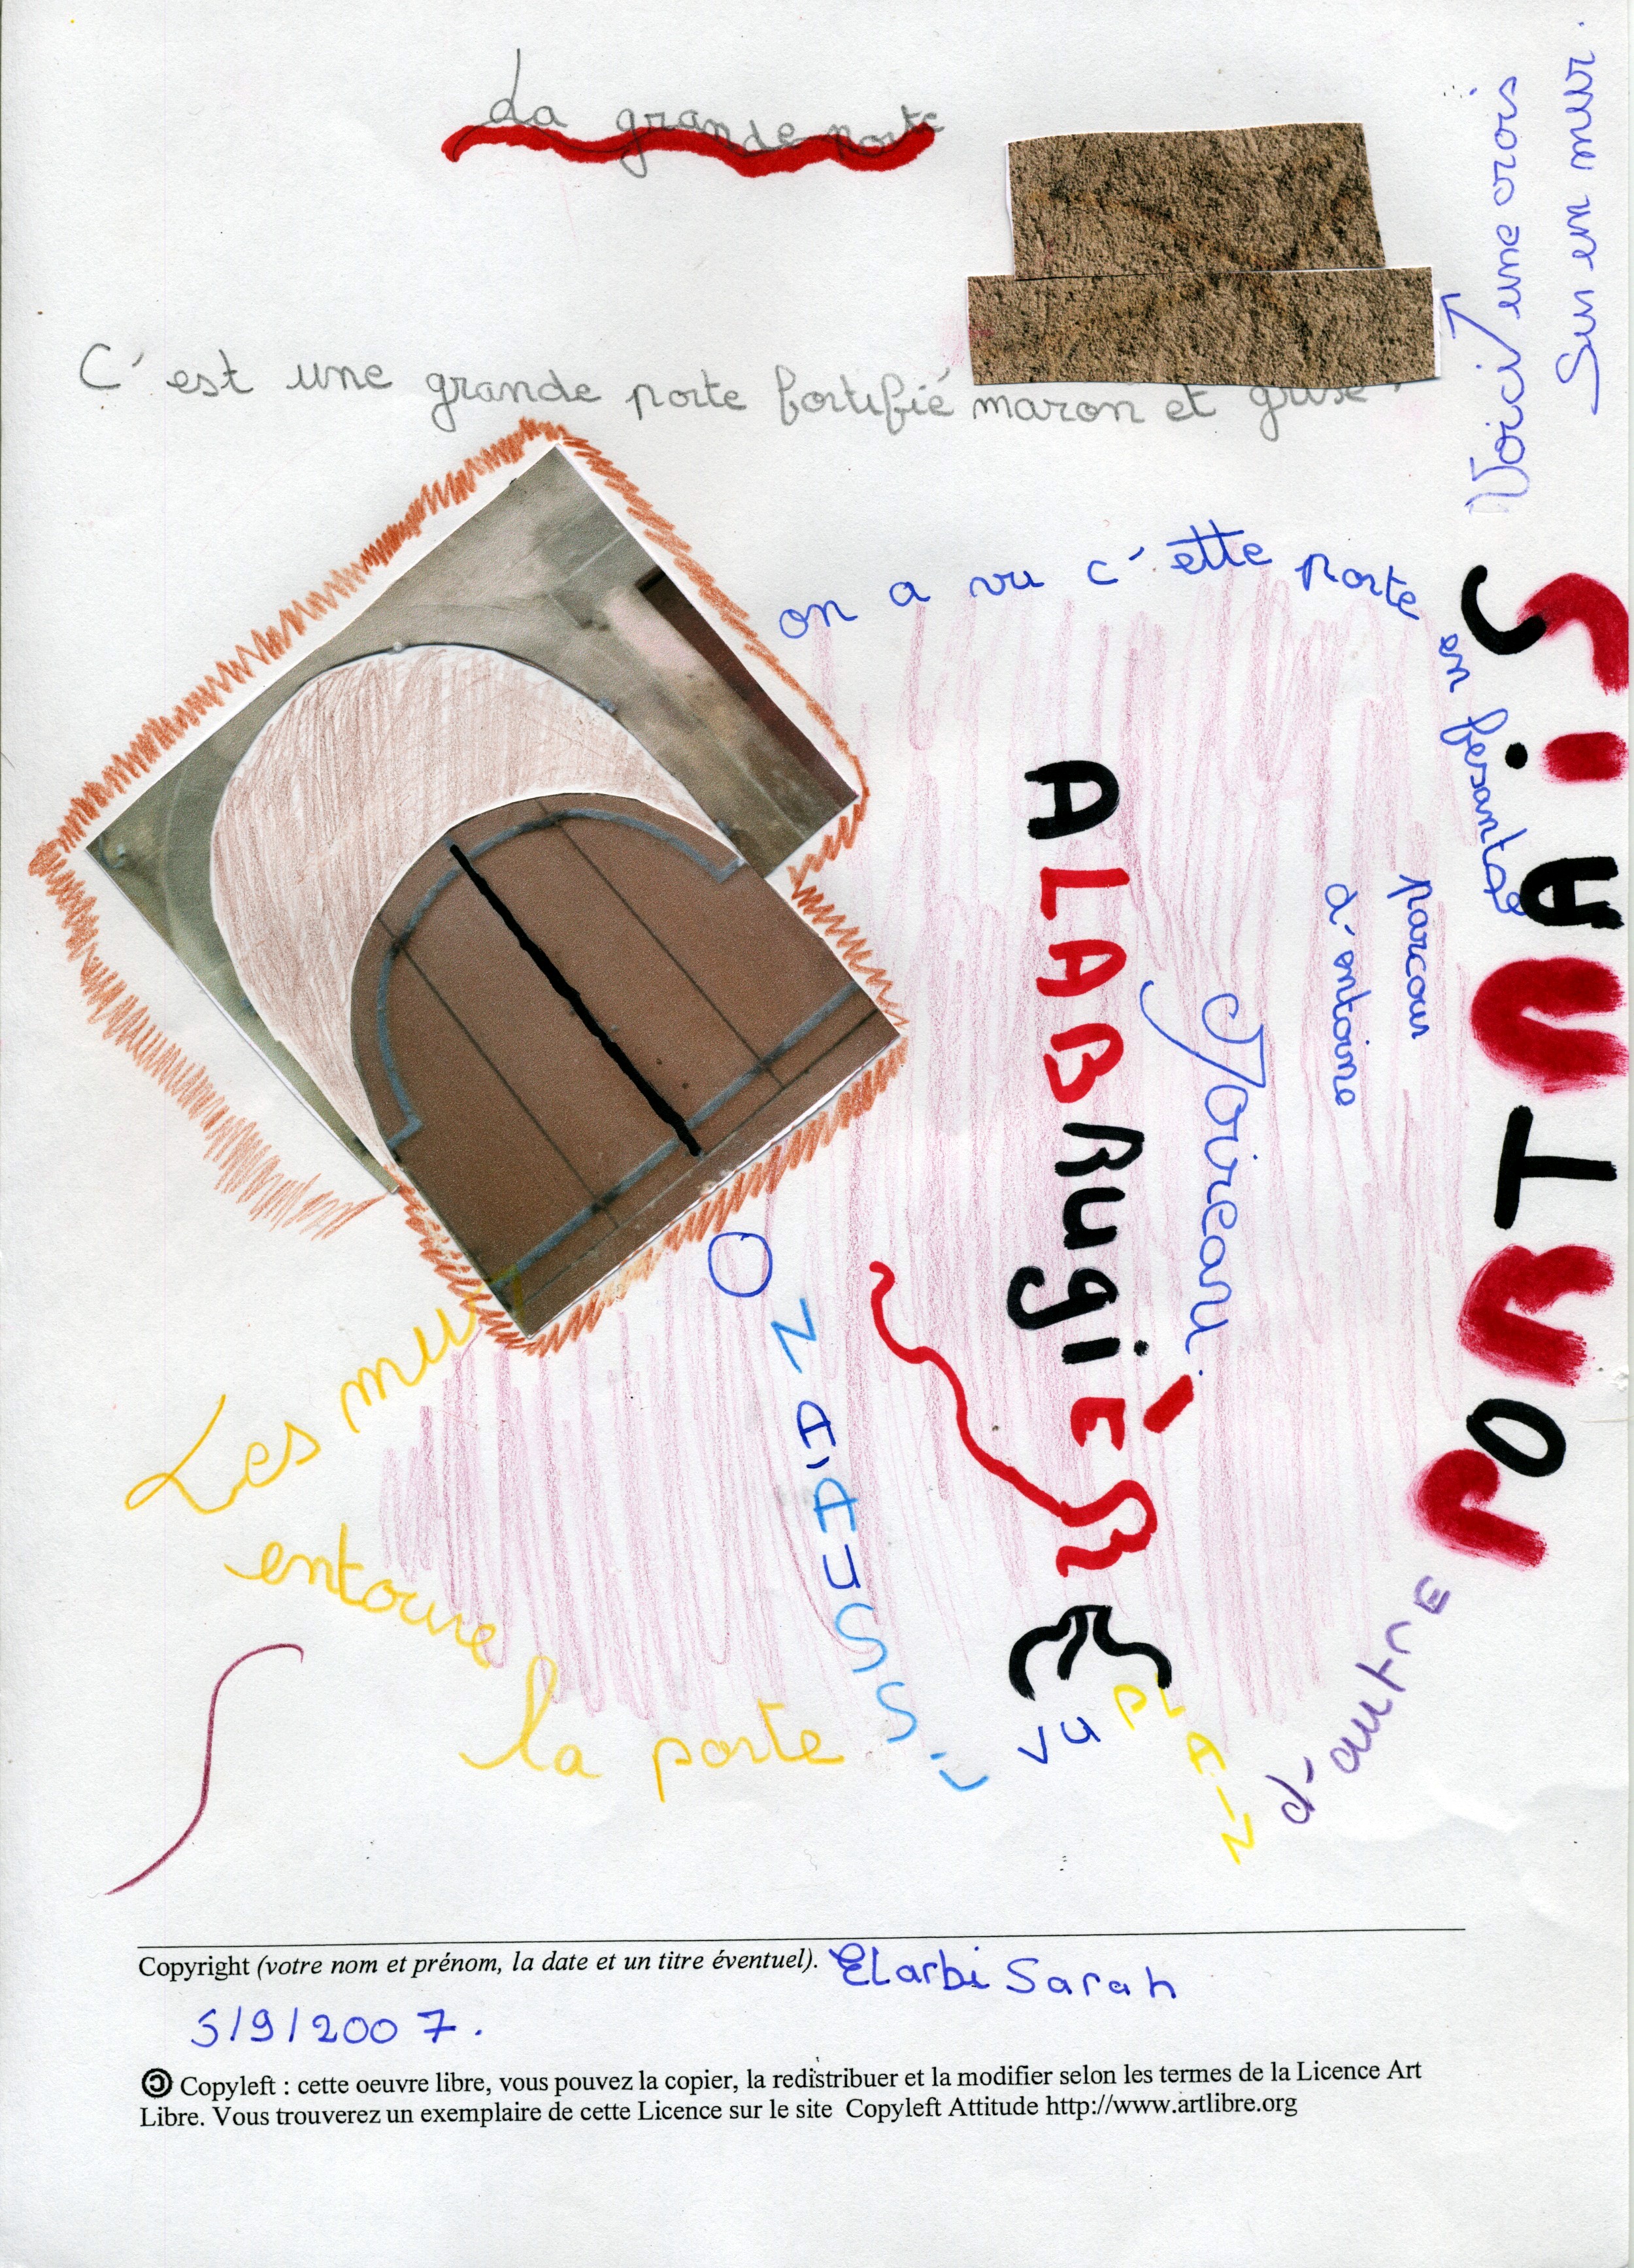 La grande porte
C'est une grande porte fortifié maron et grise
Voici une crois
Sur en mur.
on a vu c'ette porte
en fesant le
parcour
d'entoine
Yoireau.
PORT
ALABRugiÈRE
Les mur
entoure
la porte
ON A AUSSi
vu
PLAIN
d'autrE
Copyright (votre nom et prénom, la date et un titre éventuel). ELarbi Sarah
5/9/2007.
Copyleft : cette oeuvre libre, vous pouvez la copier, la redistribuer et la modifier selon les termes de la Licence Art
Libre. Vous trouverez un exemplaire de cette Licence sur le site Copyleft Attitude http://www.artlibre.org